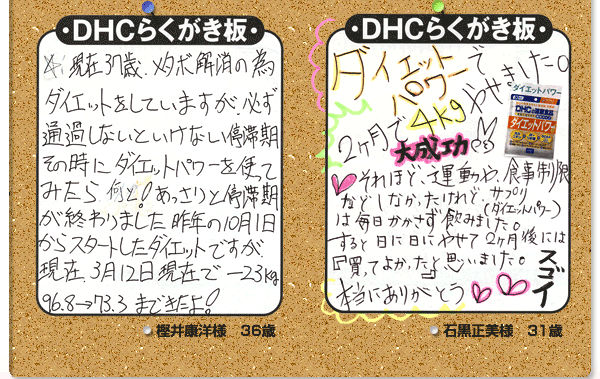 ・DHCらくがき板・
現在37歳.メタボ解消の為
ダイエットをしていますが、必ず
通過しないといけない停滞期
その時にダイエットパワーを使って
みたら、何と!あっさりと停滞期
が終わりました 昨年の10月1日
からスタートしたダイエットですが、
現在、3月12日現在で −23kg
96.8→73.3 まできたよ!
樫井康洋様 36歳
・DHCらくがき板・
ダイエットパワーで
2ヶ月で4kgやせました。
大成功!
ダイエットパワー
DHC
ダイエットパワー
それほど、運動や、食事制限
などしなかったけれど、サプリ
(ダイエットパワー)
は毎日かかさず飲みました。
すると日に日にやせて2ヶ月後には
『買ってよかった』と思いました。
本当にありがとう
スゴイ
石黒正美様 31歳